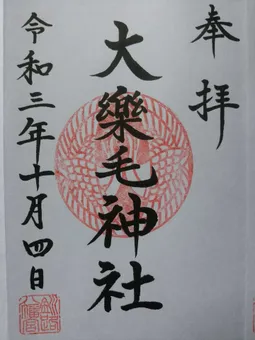 奉拝
大樂毛神社
令和三年十月四日